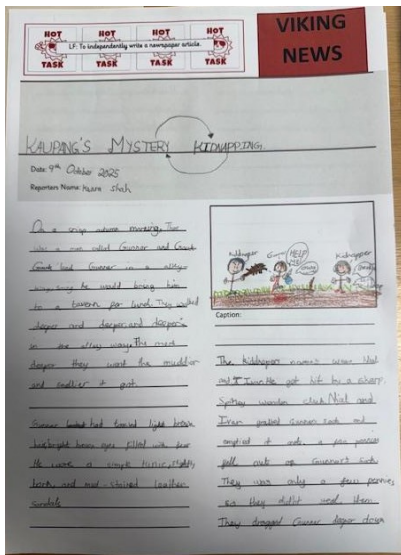 HOT TASK
HOT TASK
HOT TASK
HOT TASK
LF: To independently write a newspaper article.
VIKING NEWS
KAUPANG'S MYSTERY KIDNAPPING.
Date: 9th October 2025
Reporters Name: Shah
On a crisp autumn morning,
was a man called Gunner and
lead Gunner in a alley
he would bring him
to a tavern for lunch. They walked
deeper and deeper and deeper
in the alley way. The more
deeper they went the muddier
and smellier it got.
Gunner had light brown
bright eyes filled with fear
He wore a simple tunic,
torn and mud-stained leather
Sandals
Kidnapper
HELP ME!
Kidnapper
Caption:
The kidnappers were Njal
and Ivan. He got hit by a sharp,
wooden club. Njal and
Ivan grabbed Gunners sack and
emptied it out, a few pennies
fell out of Gunner's Sack
They was only a few pennies,
so they didn't them.
They dragged Gunner deeper down